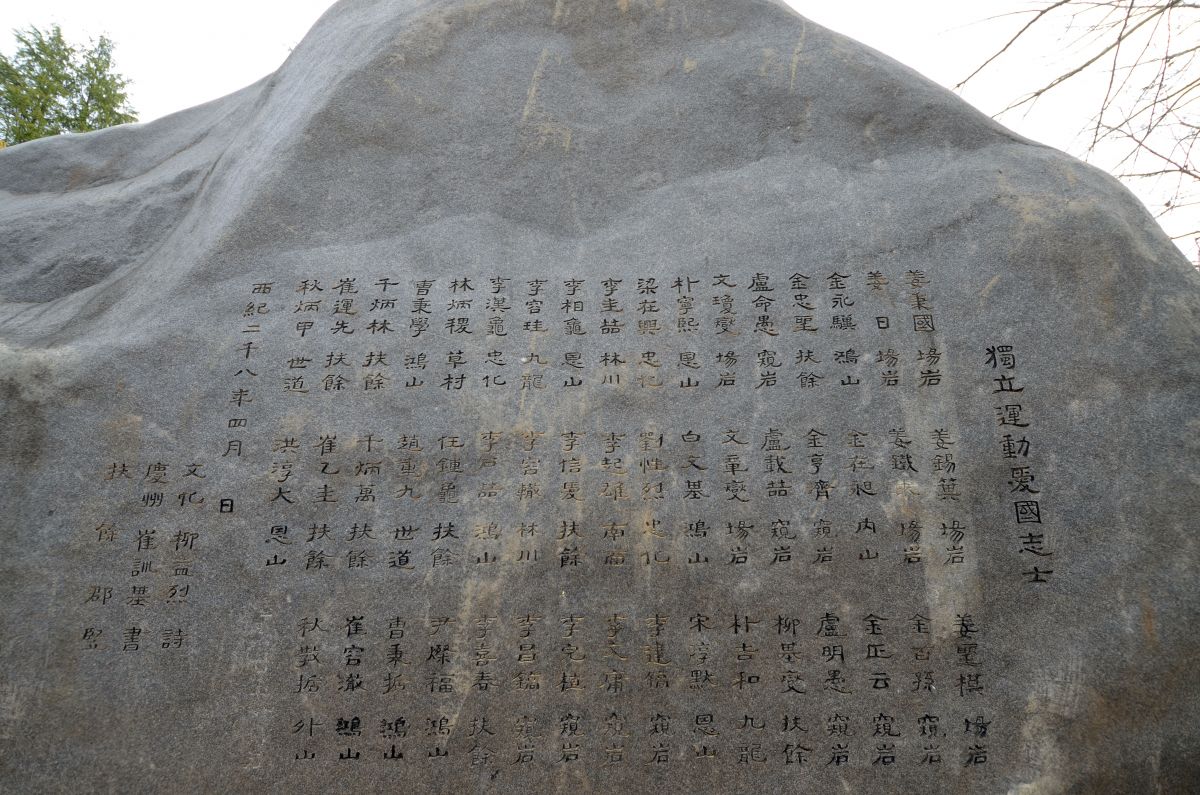 獨立運動愛國志士
姜秉國 場岩 姜錫箕 場岩 姜聖祺 場岩
姜 日 場岩 姜鐵求 場岩 金百孫 窺岩
金永驥 鴻山 金在昶 內山 金正云 窺岩
金忠聖 扶餘 金亨齊 窺岩 盧明愚 窺岩
盧命愚 窺岩 盧載喆 窺岩 柳基燮 扶餘
文瓊燮 場岩 文章燮 場岩 朴吉和 九龍
朴寧熙 恩山 白文基 鴻山 宋淳默 恩山
梁在興 忠化 劉性烈 忠化 李建鎬 窺岩
李圭喆 林川 李起雄 南面 李文庸 窺岩
李相龜 恩山 李信愚 扶餘 李宅植 窺岩
李容珪 九龍 李容轍 林川 李昌鎬 窺岩
李漢龜 忠化 鴻山 李喜春 扶餘
林炳稷 草村 任鍾龜 扶餘 尹燦福 鴻山
曺秉學 鴻山 趙重九 世道 曺秉哲 鴻山
千炳林 扶餘 千炳萬 扶餘 崔容澈 鴻山
崔運先 扶餘 崔乙圭 扶餘 秋敎哲 外山
秋炳甲 世道 洪淳大 恩山
西紀二千八年四月 日
文化 柳益烈 詩
慶州 崔訓基 書
扶 餘 郡 竪